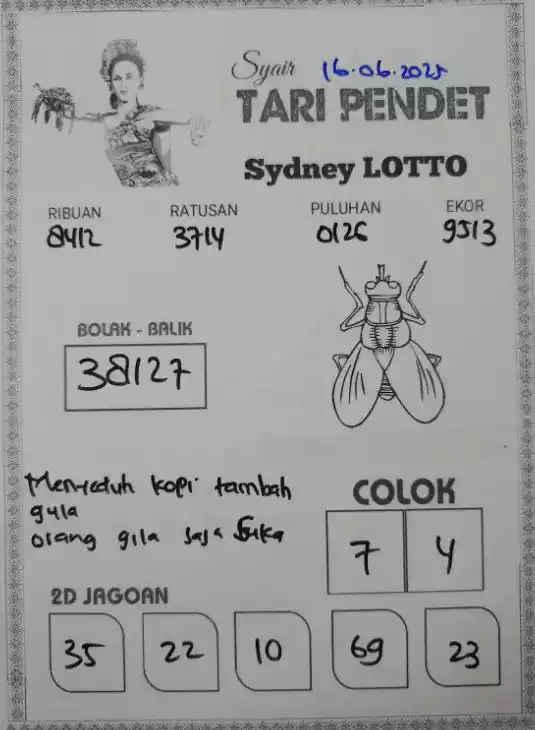 Syair 16.06.2025
TARI PENDET
Sydney LOTTO
RIBUAN RATUSAN PULUHAN EKOR
8412 3714 0126 9513
BOLAK - BALIK
38127
Menyeduh kopi tambah
gula
orang gila saja suka
COLOK
7 4
2D JAGOAN
35 22 10 69 23